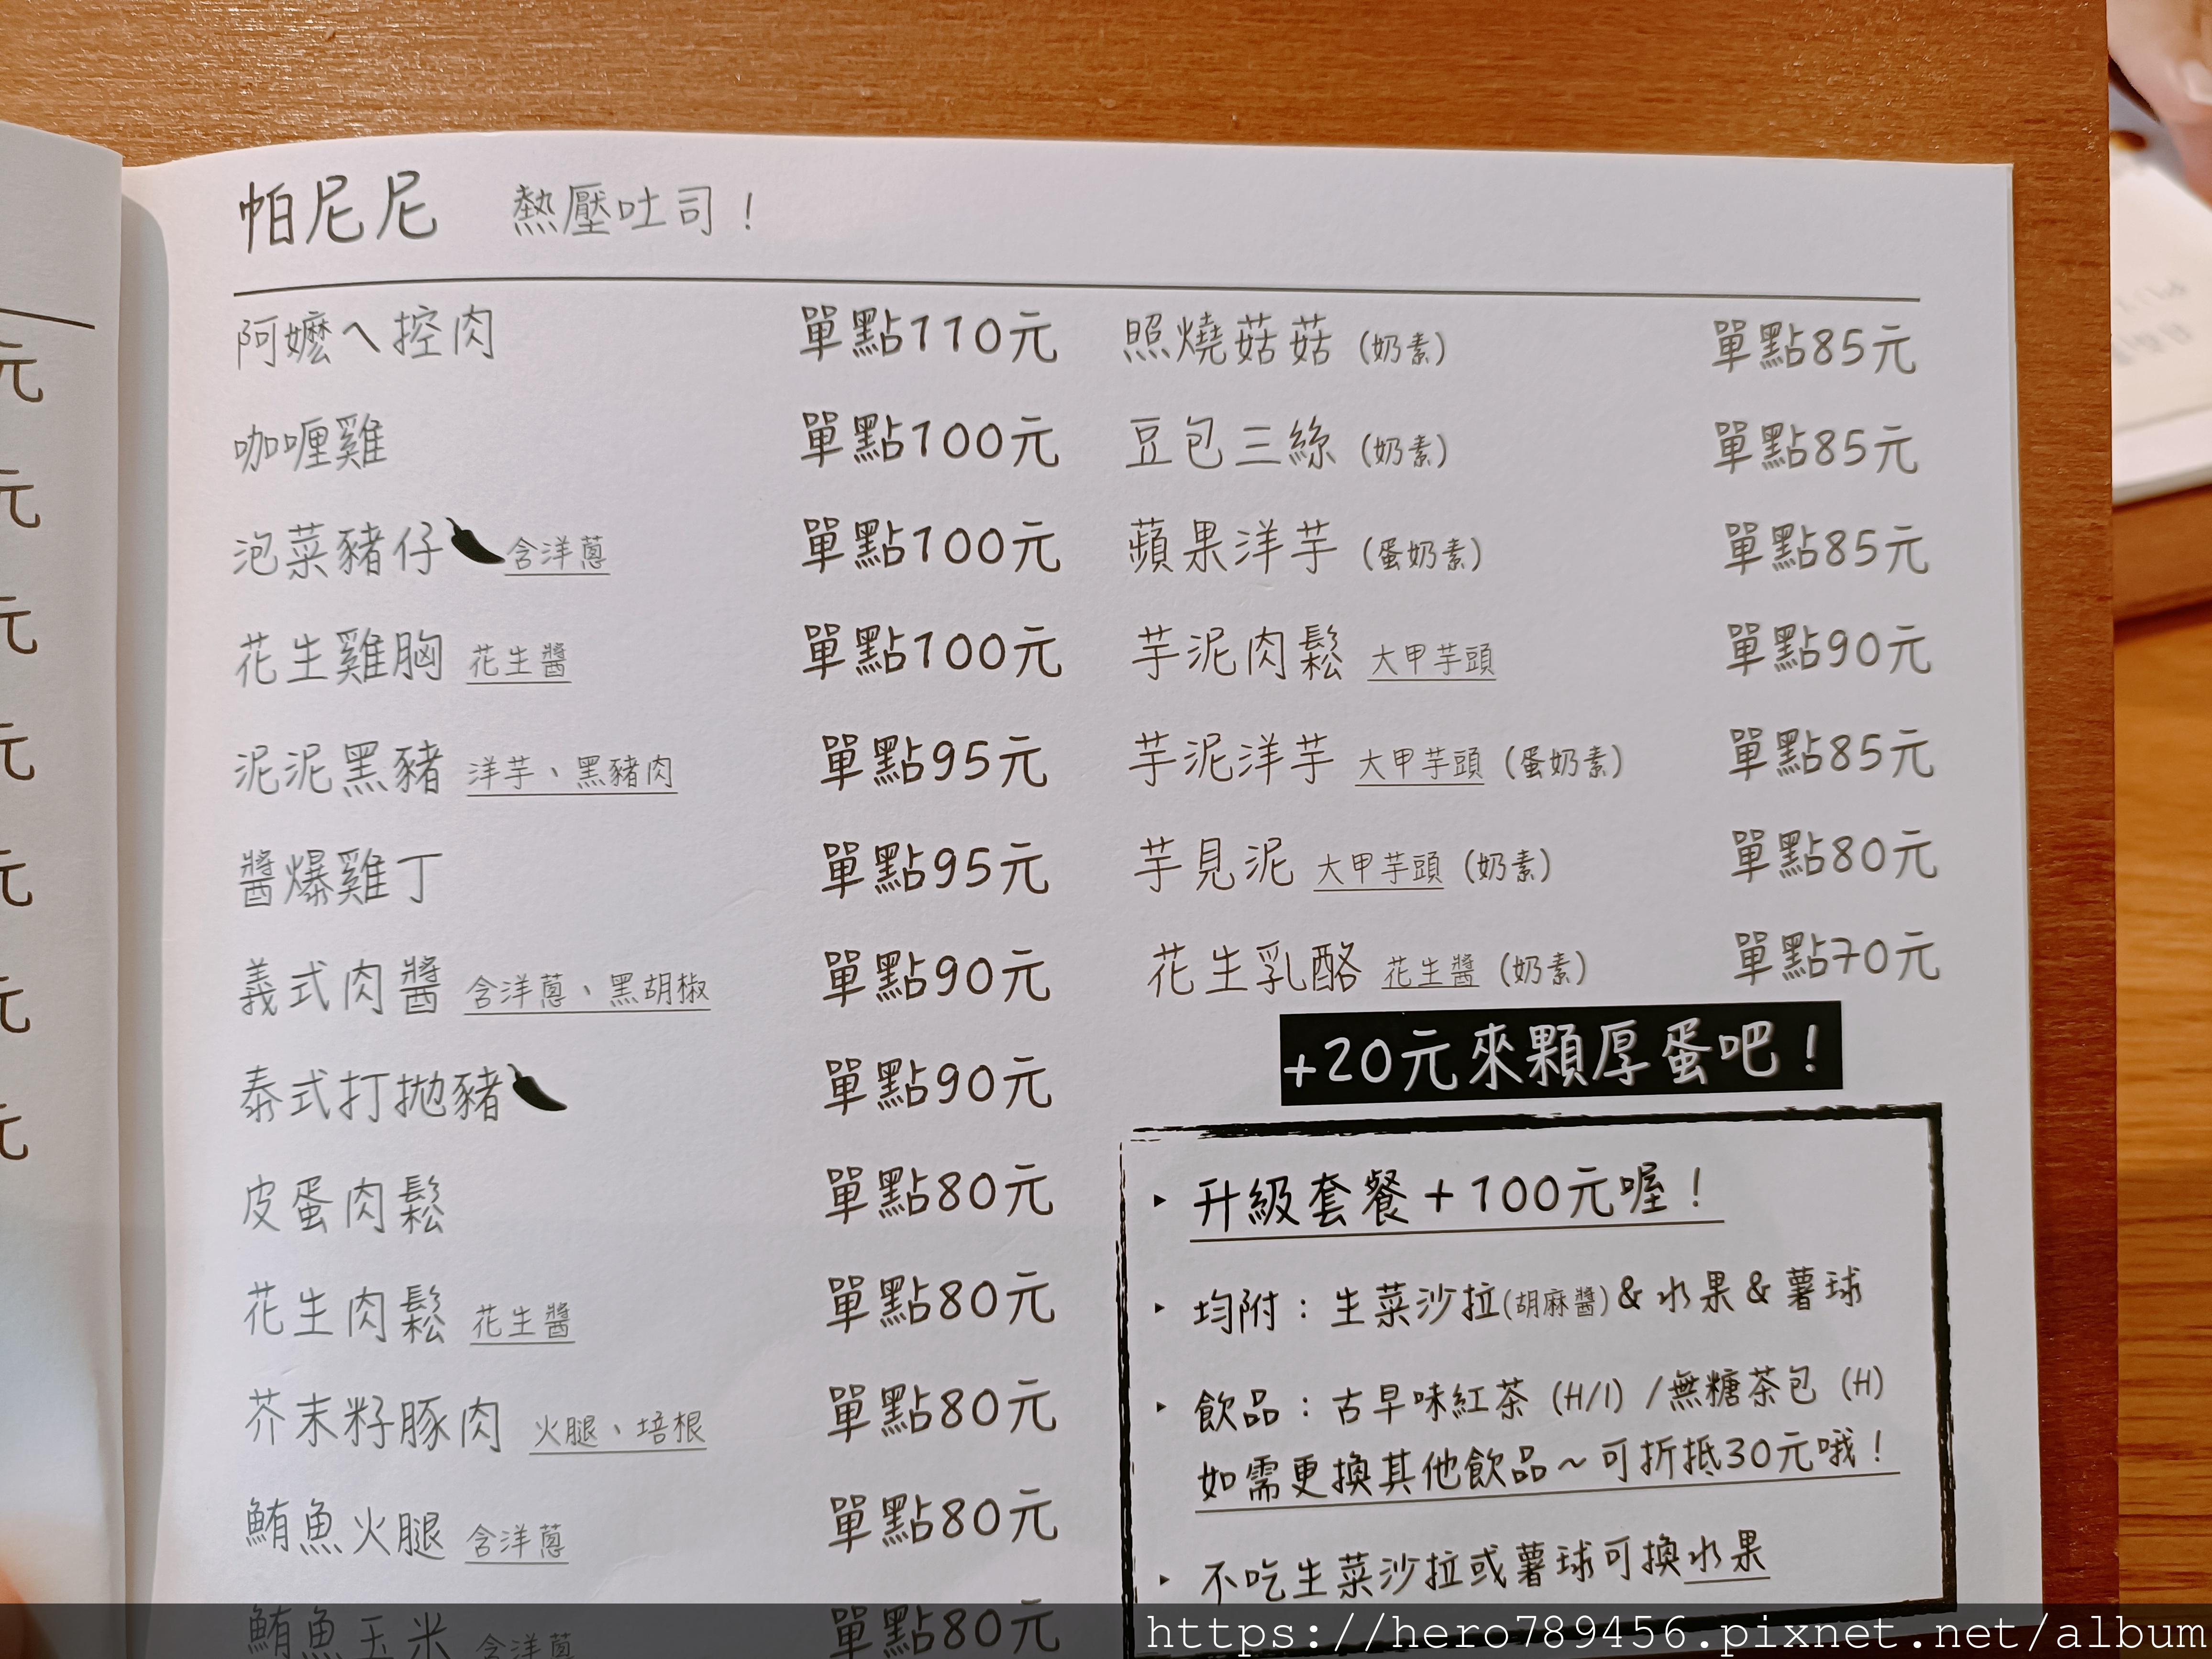 帕尼尼 熱壓吐司！
阿嬤ㄟ控肉 單點110元
咖哩雞 單點100元
泡菜豬仔 含洋蔥 單點100元
花生雞胸 花生醬 單點100元
泥泥黑豬 洋芋、黑豬肉 單點95元
醬爆雞丁 單點95元
義式肉醬 含洋蔥、黑胡椒 單點90元
泰式打拋豬 單點90元
皮蛋肉鬆 單點80元
花生肉鬆 花生醬 單點80元
芥末籽豚肉 火腿、培根 單點80元
鮪魚火腿 含洋蔥 單點80元
鮪魚玉米 含洋蔥 單點80元
照燒菇菇 (奶素) 單點85元
豆包三絲 (奶素) 單點85元
蘋果洋芋 (蛋奶素) 單點85元
芋泥肉鬆 大甲芋頭 單點90元
芋泥洋芋 大甲芋頭 (蛋奶素) 單點85元
芋見泥 大甲芋頭 (奶素) 單點80元
花生乳酪 花生醬 (奶素) 單點70元
+20元來顆厚蛋吧！
‣ 升級套餐+100元喔！
‣ 均附：生菜沙拉(胡麻醬)&水果&薯球
‣ 飲品：古早味紅茶 (H/I) /無糖茶包 (H)
如需更換其他飲品~可折抵30元哦！
‣ 不吃生菜沙拉或薯球可換水果
元
元
元
元
元
元
元
https://hero789456.pixnet.net/album